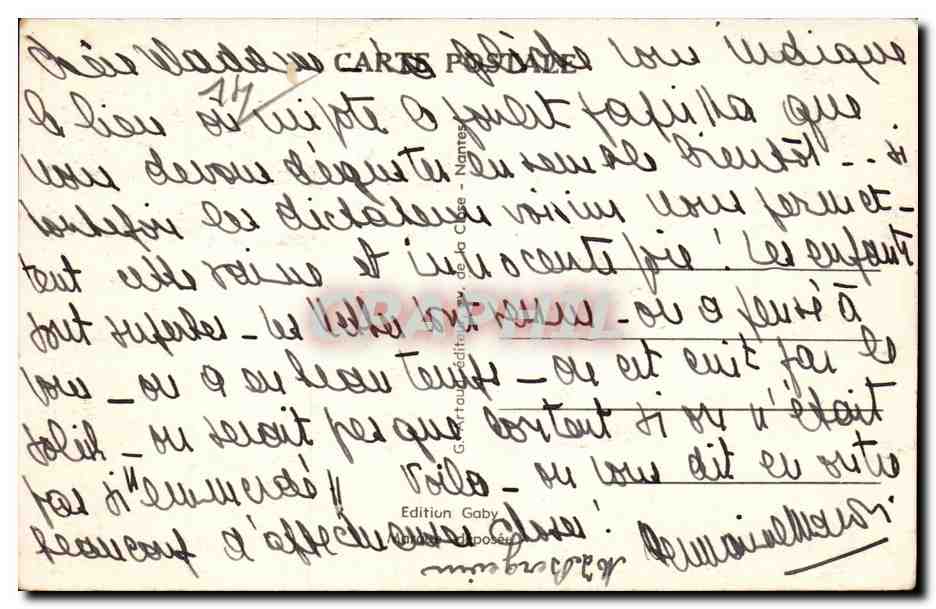 Chère Madame - la flèche vous indique
CARTE POSTALE
14
le lieu où mijote le poulet que
nous devons déguster ensemble bientôt -- si
toutefois les dictateurs voisins nous permet-
tent cette saine et innocente joie ! Les enfants
sont superbes - les sont venus - on a pensé à
vous - on a eu beau temps - on est cuit par le
soleil - on serait presque content si on n'était
pas si "emmerdé" Voilà - on vous dit en outre
beaucoup d'affectueuses choses !
G. Artaud, éditeur, av. de la Close - Nantes
Edition Gaby
Marque déposée
GRAPHIL